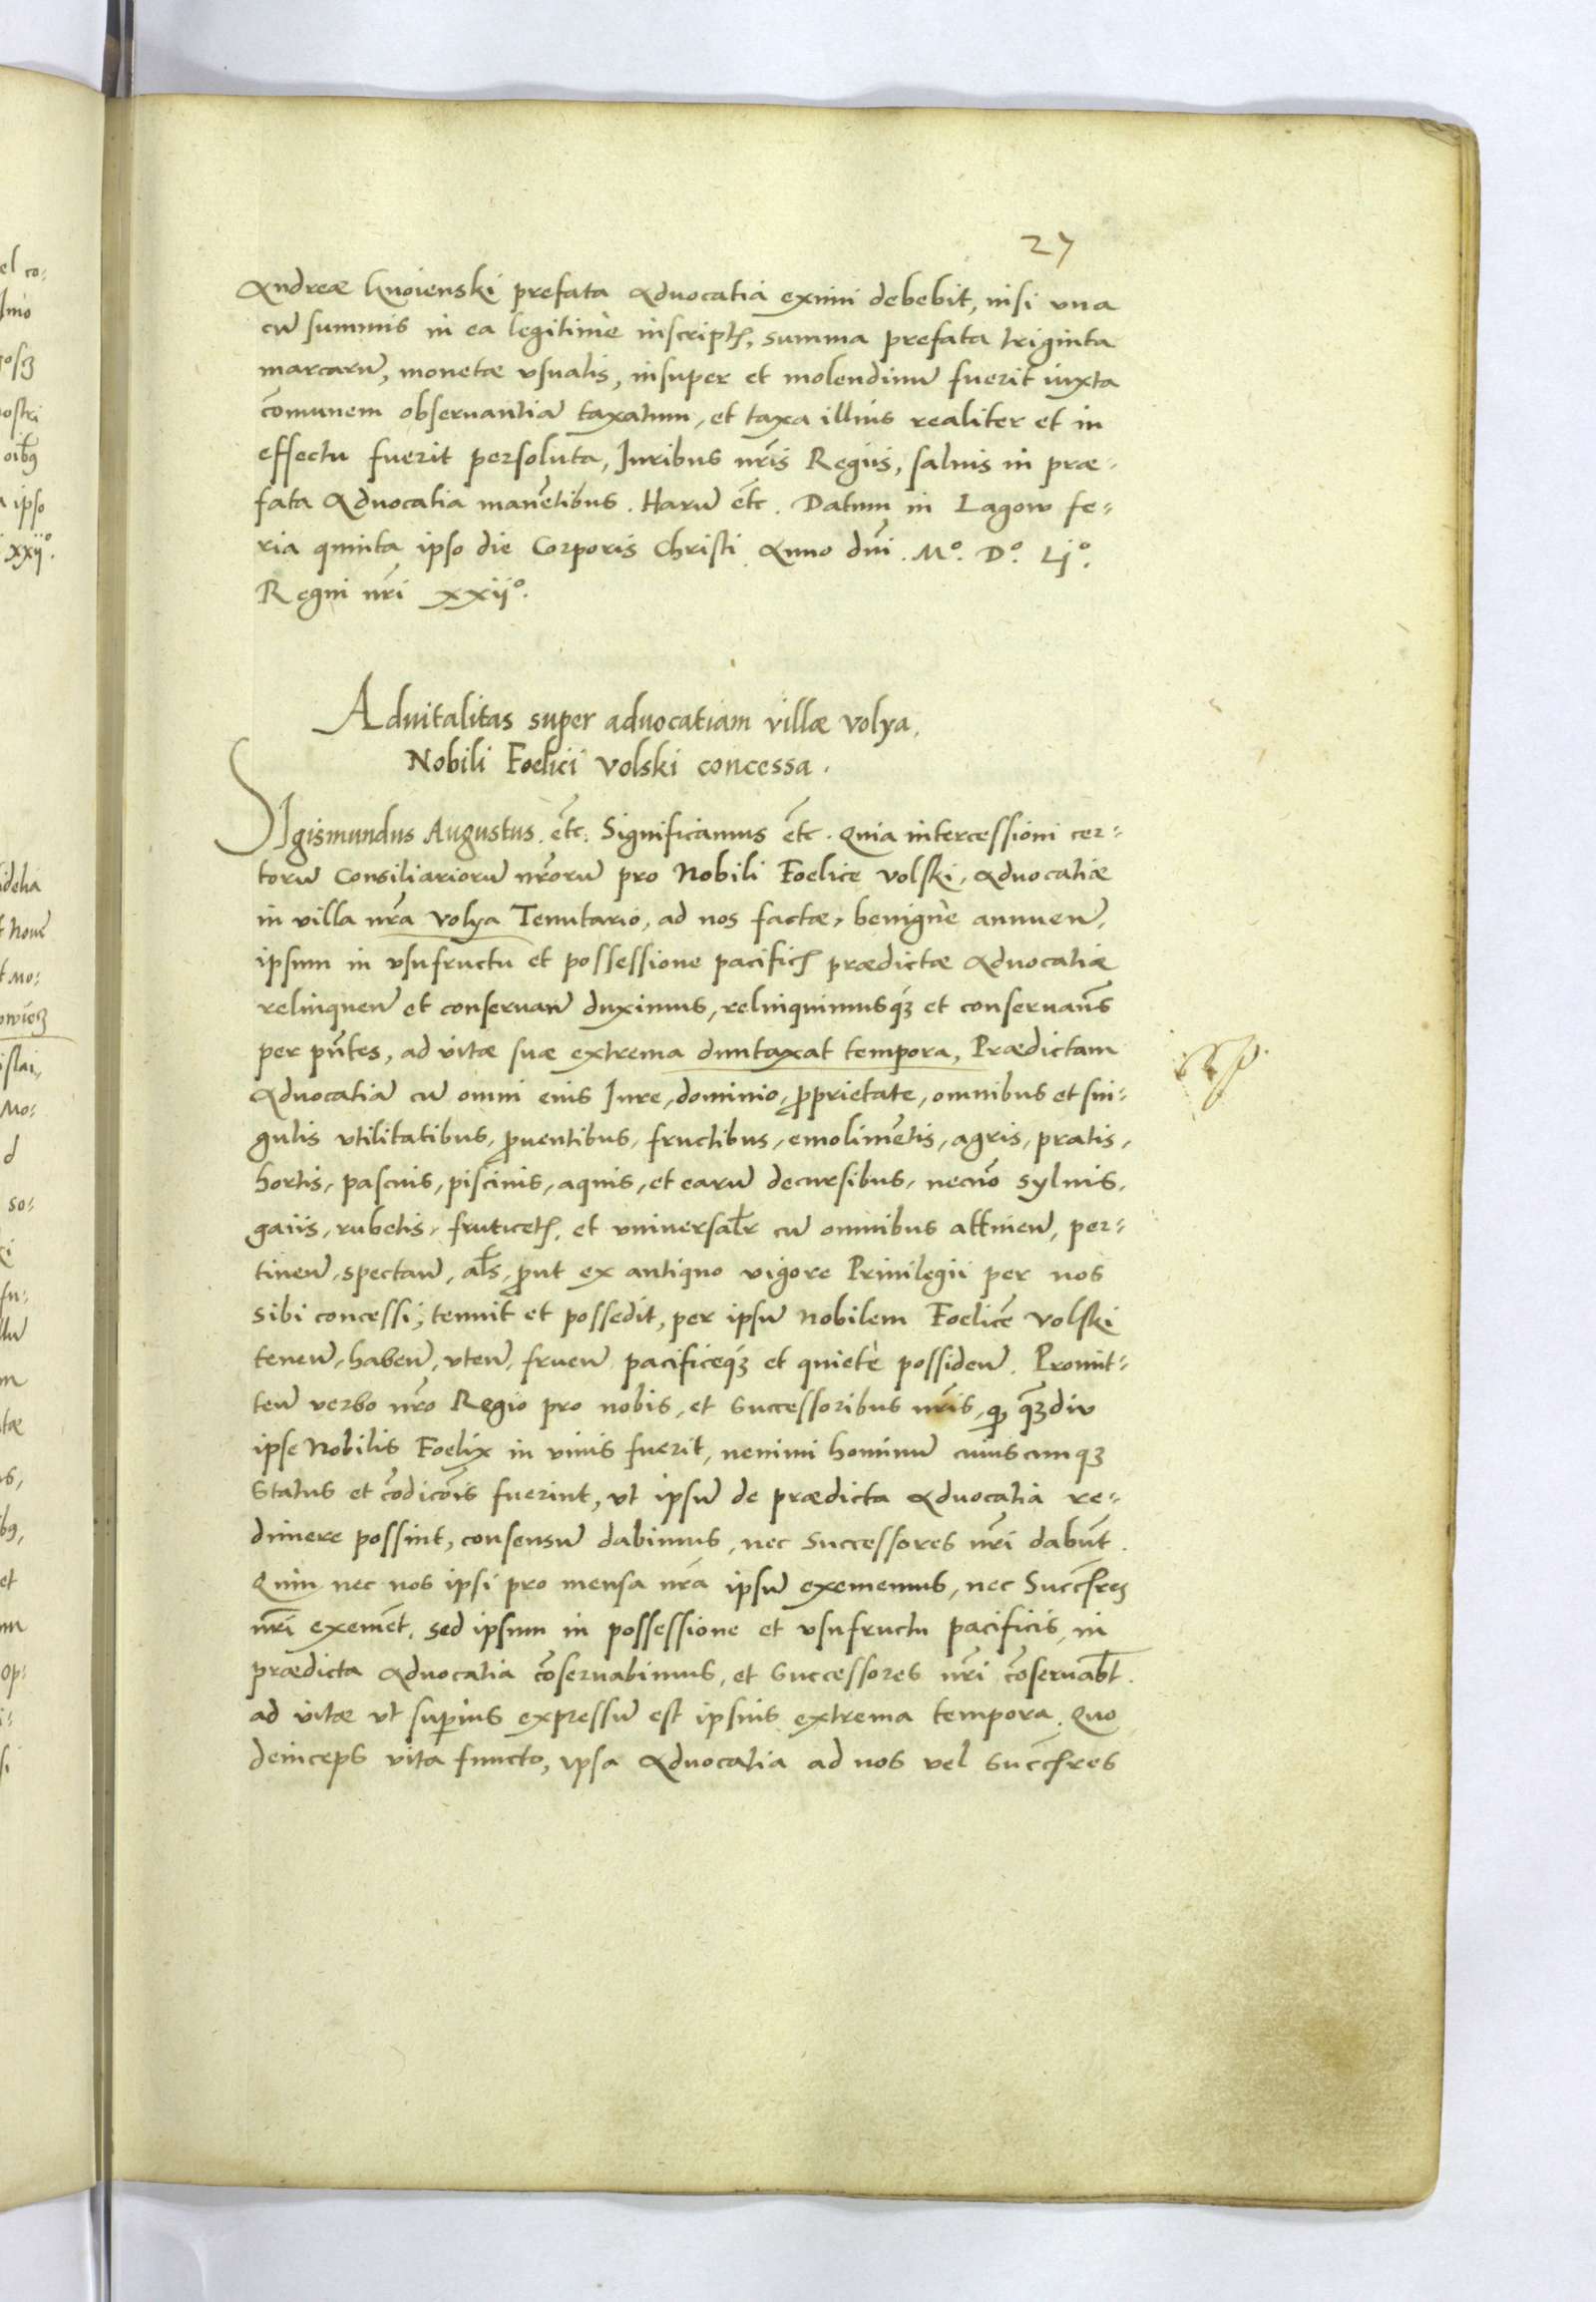 27
Andreæ Gnoienski prefata Aduocatia eximi debebit, nisi vna
cũ summis in ea legitimè inscriptꝭ, summa prefata triginta
marcarũ, monetæ vsualis, insuper et molendinũ fuerit iuxta
cõmunem obseruantiã taxatum, et taxa illius realiter et in
effectu fuerit persoluta, Iuribus nr̃is Regiis, saluis in præ-
fata Aduocatia manẽtibus. Harũ etc̃. Datum in Lagow fe-
ria quinta ipso die Corporis Christi Anno dñi. Mº. Dº. Lijº.
Regni nr̃i xxijº.
Aduitalitas super aduocatiam villæ volya,
Nobili Foelici volski concessa.
SIgismundus Augustus. etc̃. Significamus etc̃. Quia intercessioni cer-
torũ Consiliariorũ nr̃orũ pro Nobili Foelice volski, Aduocatiæ
in villa nr̃a volya Tenutario, ad nos factæ, benignè annuen̄,
ipsum in vsufructu et possessione pacificꝭ prædictæ Aduocatiæ
relinquen̄ et conseruan̄ duximus, relinquimusqꝫ et conseruam̃s
per pñtes, ad vitæ suæ extrema duntaxat tempora, Prædictam
Aduocatiã cũ omni eius Iure, dominio, ꝓprietate, omnibus et sin-
gulis vtilitatibus, ꝓuentibus, fructibus, emolimẽtis, agris, pratis,
hortis, pascuis, piscinis, aquis, et earũ decursibus, necnõ syluis,
gaiis, rubetis, fruticetꝭ, et vniuersalr̃ cũ omnibus attinen̄, per-
tinen̄, spectan̄, al̃s, ꝓut ex antiquo vigore Priuilegii per nos
sibi concessi, tenuit et possedit, per ipsũ Nobilem Foelicẽ volski
tenen̄, haben̄, vten̄, fruen̄ pacificeqꝫ et quietè possiden̄. Promit-
ten̄ verbo nr̃o Regio pro nobis, et Successoribus nr̃is, ꝙ qꝫdiu
ipse Nobilis Foelix in viuis fuerit, nemini hominũ cuiuscumqꝫ
Status et cõdicõis fuerint, vt ipsũ de prædicta Aduocatia re-
dimere possint, consensũ dabimus, nec Successores nr̃i dabũt.
Quin nec nos ipsi pro mensa nr̃a ipsũ exememus, nec Succr̃es
nr̃i exemẽt, sed ipsum in possessione et vsufructu pacificis, in
prædicta Aduocatia cõseruabimus, et Successores nr̃i cõseruabt̃.
ad vitæ vt suꝑius expressũ est ipsius extrema tempora. Quo
deinceps vita functo, ipsa Aduocatia ad nos vel Succr̃es